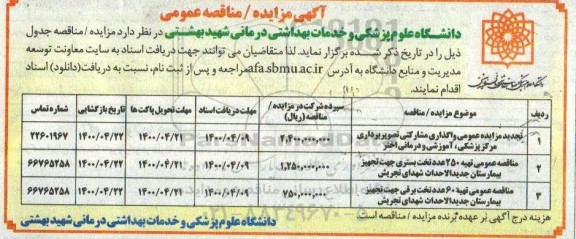 آگهی مزایده / مناقصه عمومی
دانشگاه علوم پزشکی و خدمات بهداشتی درمانی شهید بهشتی در نظر دارد مزایده / مناقصه جدول
ذیل را در تاریخ ذکر شده برگزار نماید. لذا متقاضیان می توانند جهت دریافت اسناد به سایت معاونت توسعه
مدیریت و منابع دانشگاه به آدرس afa.sbmu.ac.ir مراجعه و پس از ثبت نام، نسبت به دریافت (دانلود) اسناد
اقدام نمایند.
ردیف موضوع مزایده / مناقصه سپرده شرکت در مزایده / مناقصه (ریال) مهلت دریافت اسناد مهلت تحویل پاکت ها تاریخ بازگشایی شماره تماس
۱ تجدید مزایده عمومی واگذاری مشارکتی تصویربرداری مرکز پزشکی، آموزشی و درمانی اختر ۴,۴۰۰,۰۰۰,۰۰۰ ۱۴۰۰/۰۴/۰۹ ۱۴۰۰/۰۴/۲۱ ۱۴۰۰/۰۴/۲۲ ۲۲۶۰۱۹۶۷
۲ مناقصه عمومی تهیه ۲۵۰ عدد تخت بستری جهت تجهیز بیمارستان جدیدالاحداث شهدای تجریش ۱,۲۵۰,۰۰۰,۰۰۰ ۱۴۰۰/۰۴/۰۹ ۱۴۰۰/۰۴/۲۱ ۱۴۰۰/۰۴/۲۲ ۶۶۷۶۵۲۵۸
۳ مناقصه عمومی تهیه ۶۰ عدد تخت برقی جهت تجهیز بیمارستان جدیدالاحداث شهدای تجریش ۷۵۰,۰۰۰,۰۰۰ ۱۴۰۰/۰۴/۰۹ ۱۴۰۰/۰۴/۲۱ ۱۴۰۰/۰۴/۲۲ ۶۶۷۶۵۲۵۸
هزینه درج آگهی بر عهده برنده مزایده / مناقصه است
دانشگاه علوم پزشکی و خدمات بهداشتی درمانی شهید بهشتی